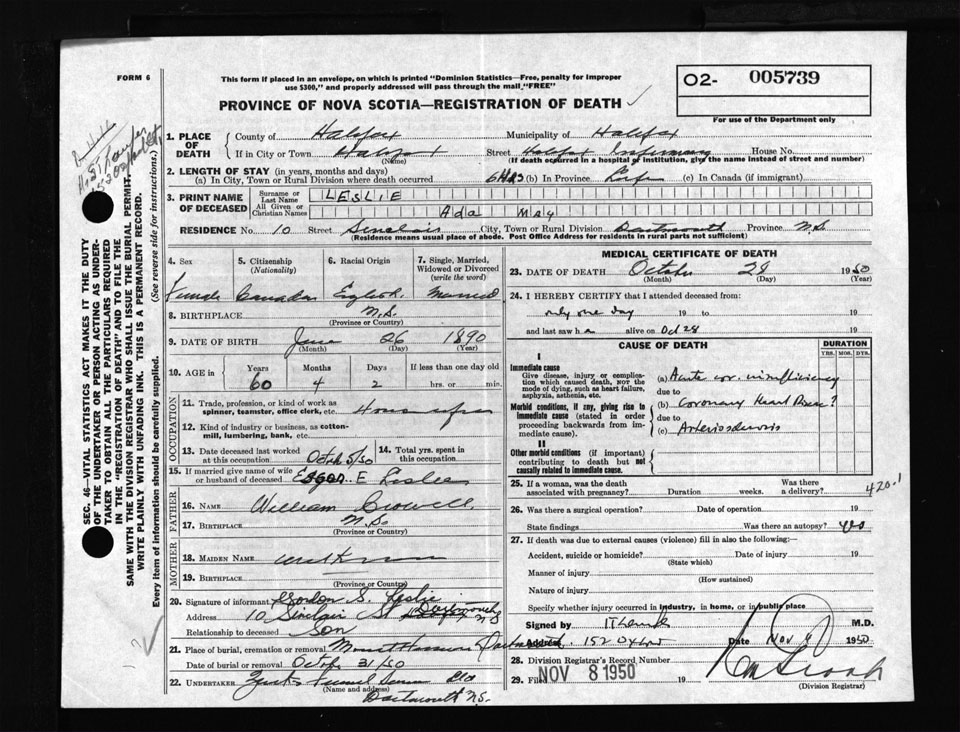 FORM 6
This form if placed in an envelope, on which is printed "Dominion Statistics—Free, penalty for improper
use $300," and properly addressed will pass through the mail "FREE"
PROVINCE OF NOVA SCOTIA—REGISTRATION OF DEATH
02- 005739
For use of the Department only
SEC. 46—VITAL STATISTICS ACT MAKES IT THE DUTY
OF THE UNDERTAKER OR PERSON ACTING AS UNDER-
TAKER TO OBTAIN ALL THE PARTICULARS REQUIRED
IN THE "REGISTRATION OF DEATH" AND TO FILE THE
SAME WITH THE DIVISION REGISTRAR WHO SHALL ISSUE THE BURIAL PERMIT.
WRITE PLAINLY WITH UNFADING INK. THIS IS A PERMANENT RECORD.
Every item of information should be carefully supplied. (See reverse side for instructions.)
1. PLACE OF DEATH
County of Halifax Municipality of Halifax
If in City or Town Halifax Street Halifax Infirmary House No.
(Name) (If death occurred in a hospital or institution, give the name instead of street and number)
2. LENGTH OF STAY (in years, months and days)
(a) In City, Town or Rural Division where death occurred 6 HRS (b) In Province Life (c) In Canada (if immigrant)
3. PRINT NAME OF DECEASED
Surname or Last Name LESLIE
All Given or Christian Names Ada May
RESIDENCE No. 10 Street Sinclair City, Town or Rural Division Dartmouth Province N.S.
(Residence means usual place of abode. Post Office Address for residents in rural parts not sufficient)
4. Sex 5. Citizenship (Nationality) 6. Racial Origin 7. Single, Married, Widowed or Divorced (write the word)
Female Canadian English Married
8. BIRTHPLACE N.S.
(Province or Country)
9. DATE OF BIRTH June 26 1890
(Month) (Day) (Year)
10. AGE in Years Months Days If less than one day old
60 4 2 hrs. or min.
OCCUPATION
11. Trade, profession, or kind of work as
spinner, teamster, office clerk, etc. House wife
12. Kind of industry or business, as cotton-
mill, lumbering, bank, etc.
13. Date deceased last worked at this occupation 14. Total yrs. spent in this occupation
15. If married give name of wife
or husband of deceased E Leslie
FATHER
16. Name William Crowell
17. Birthplace N.S.
(Province or Country)
MOTHER
18. MAIDEN NAME
19. BIRTHPLACE
(Province or Country)
20. Signature of informant Gordon S. Leslie
Address 10 Sinclair St Dartmouth NS
Relationship to deceased Son
21. Place of burial, cremation or removal Mount Hermon Dartmouth
Date of burial or removal October 31/50
22. UNDERTAKER
(Name and address)
Dartmouth N.S.
MEDICAL CERTIFICATE OF DEATH
23. DATE OF DEATH October 28 1950
(Month) (Day) (Year)
24. I HEREBY CERTIFY that I attended deceased from:
only one day 19 to 19
and last saw h alive on Oct 28 19
CAUSE OF DEATH DURATION
YRS. MOS. DYS.
I
Immediate cause
Give disease, injury or complica-
tion which caused death, nor the
mode of dying, such as heart failure,
asphyxia, asthenia, etc.
(a) Acute cor. insufficiency
due to
Morbid conditions, if any, giving rise to
immediate cause (stated in order
proceeding backwards from im-
mediate cause).
(b) Coronary Heart Disease?
due to
(c) Arteriosclerosis
II
Other morbid conditions (if important)
contributing to death but not
causally related to immediate cause.
25. If a woman, was the death Was there
associated with pregnancy? Duration weeks. a delivery?
420.1
26. Was there a surgical operation? Date of operation 19
State findings Was there an autopsy? yes
27. If death was due to external causes (violence) fill in also the following:—
Accident, suicide or homicide? Date of injury 19
(State which)
Manner of injury
(How sustained)
Nature of injury
Specify whether injury occurred in industry, in home, or in public place
Signed by M.D.
Address 152 Oxford Date Nov 1950
28. Division Registrar's Record Number
29. Filed NOV 8 1950 19
(Division Registrar)